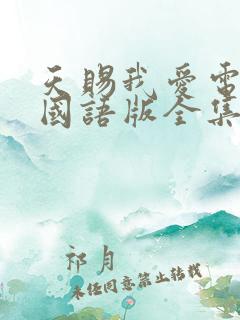 天賜我愛電
國語版全集
祁月
未经同意禁止转载